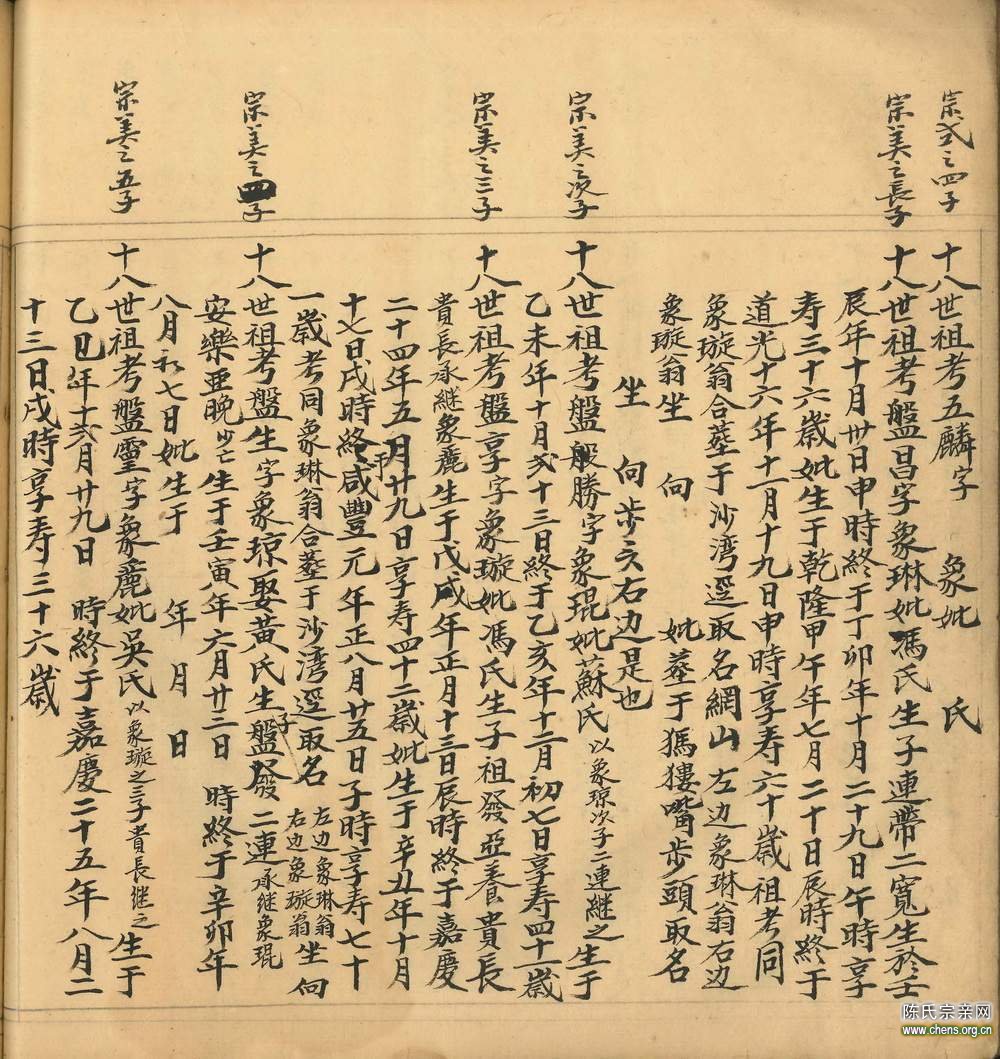 宗式之四子
十八世祖考五麟字 象妣 氏
宗美之長子
十八世祖考盤昌字象琳妣馮氏生子連帶二寬生於壬
辰年十月卅日申時終于丁卯年十月二十九日午時享
寿三十六歲妣生于乾隆甲午年七月二十日辰時終于
道光十六年十一月十九日申時享寿六十歲祖考同
象璇翁合葬于沙湾逕取名網山左边象琳翁右边
象璇翁坐 向 妣葬于獁㺏嘴步頭取名
坐 向步 右边是也
宗美之次子
十八世祖考盤般勝字象琨妣蘇氏以象琼次子二連継之生于
乙未年十月弍十三日終于乙亥年十二月初七日享寿四十一歲
宗美之三子
十八世祖考盤享字象璇妣馮氏生子祖發亞養貴長
貴長承継象麗生于戊戌年正月十三日辰時終于嘉慶
二十四年五月廿九日享寿四十二歲妣生于辛丑年十月
十七日戌時終于咸豐元年正八月廿五日子時享寿七十
一歲考同象琳翁合葬于沙湾逕取名左边象琳翁右边象璇翁坐向
宗美之四子
十八世祖考盤生字象琼娶黃氏生子盤發二連承继象琨
安樂亜晚少亡生于壬寅年六月廿二日 時終于辛卯年
八月初七日妣生于 年 月 日
宗美之五子
十八世祖考盤靈字象麗妣吳氏以象璇之三子貴長継之生于
乙巳年十六月廿九日 時終于嘉慶二十五年八月二
十三日戌時享寿三十六歲
陈氏宗亲网
www.chens.org.cn